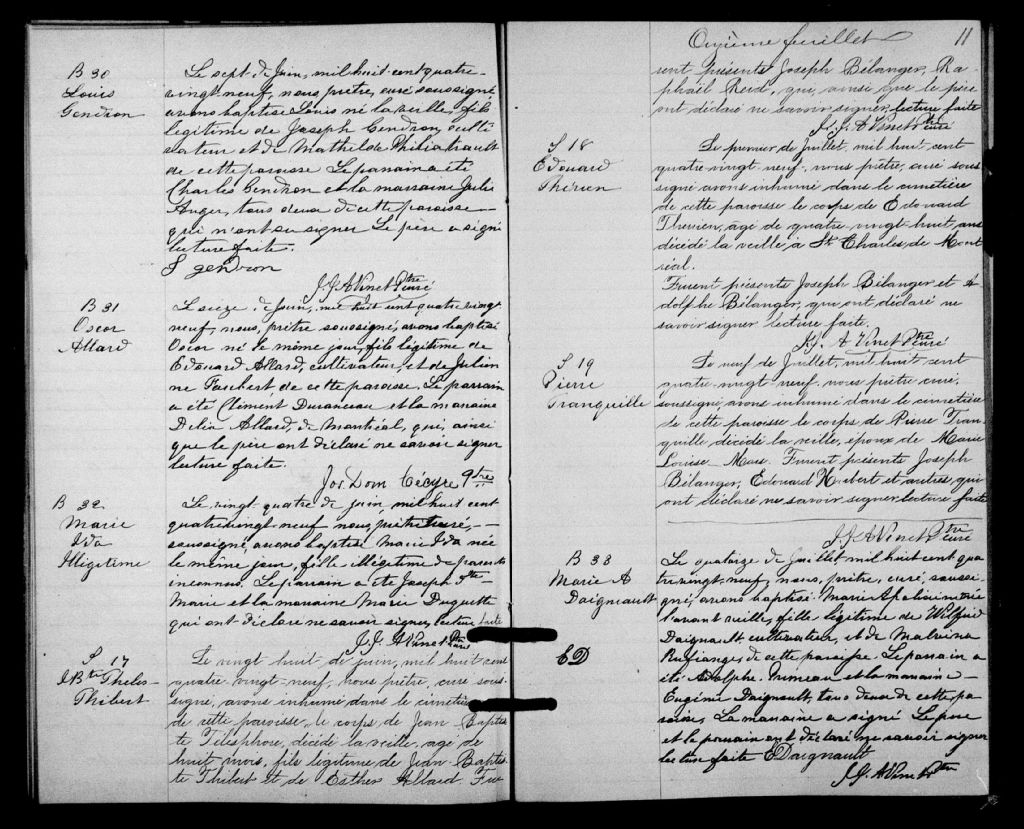 B 30
Louis
Gendron
Le sept de Juin, mil huit cent quatre-
vingt-neuf, nous, prêtre, curé soussigné
avons baptisé Louis né la veille, fils
légitime de Joseph Gendron, culti
vateur et de Mathilde Philiatrault
de cette paroisse Le parrain a été
Charles Gendron et la marraine Julie
Auger, tous deux de cette paroisse
qui n'ont su signer Le père a signé
lecture faite.
J gendron
J. J. A Vinet Ptre curé
B 31
Oscar
Allard
Le seize de Juin, mil huit cent quatre vingt
neuf, nous, prêtre soussigné, avons baptisé
Oscar né le même jour, fils légitime de
Edouard Allard, cultivateur, et de Julien
ne Faubert de cette paroisse. Le parrain
a été Clément Duranceau et la marraine
Delia Allard, de Montréal, qui, ainsi
que le père ont déclaré ne savoir signer
lecture faite.
Jos. Dom Cécyre Ptre
B 32
Marie
Ida
Illégitime
Le vingt quatre de juin, mil huit cent
quatre vingt neuf nous, prêtre curé,
soussigné, avons baptisé Marie Ida née
le même jour, fille illégitime de parents
inconnus. Le parrain a été Joseph Ste
Marie et la marraine Marie Duquette
qui ont déclaré ne savoir signer, lecture faite
J. J. A Vinet Ptre curé
S 17
J Bte Theles
Thibert
Le vingt huit de juin, mil huit cent
quatre-vingt-neuf, nous prêtre, curé sous-
signé, avons inhumé dans le cimetière
de cette paroisse, le corps de Jean Baptis
te Télesphore, décédé la veille, agé de
huit mois, fils légitime de Jean-Baptis
te Thibert et de Esther Allard Fu
Onzième feuillet
11
rent présents Joseph Bélanger, Ra-
phaël Reid, qui, ainsi que le père
ont déclaré ne savoir signer, lecture faite
J. J. A Vinet Ptre curé
S 18
Edouard
Therien
Le premier de Juillet, mil huit cent
quatre-vingt-neuf, nous prêtre, curé sous
signé avons inhumé dans le cimetière
de cette paroisse le corps de Edouard
Therien, agé de quatre-vingt-huit, ans
décédé la veille, à St Charles, de Mont
réal.
Furent présents Joseph Bélanger et A
dolphe Bélanger, qui ont déclaré ne
savoir signer lecture faite.
J. A Vinet Ptre curé
S 19
Pierre
Tranquille
Le neuf de Juillet, mil huit cent
quatre-vingt-neuf, nous prêtre curé,
soussigné, avons inhumé dans le cimetière
de cette paroisse le corps de Pierre Tran
quille, décédé la veille, époux de Marie
Louise. Furent présents Joseph
Bélanger, Edouard Hébert et autres, qui
ont déclaré ne savoir signer lecture faite
J. J. A Vinet Ptre curé
B 33
Marie A
Daigneault
Le quatorze de Juillet, mil huit cent qua
tre vingt-neuf, nous, prêtre, curé, soussi-
gné, avons baptisé Marie née
l'avant veille, fille légitime de Wilfrid
Daignault, cultivateur, et de Malvina
de cette paroisse. Le parrain a
été Adolphe Primeau et la marraine
Eugénie Daignault, tous deux de cette pa
roisse, La marraine a signé Le père
et le parrain ont déclaré ne savoir signer
lecture faite E Daignault
ED
J. J. A Vinet Ptre